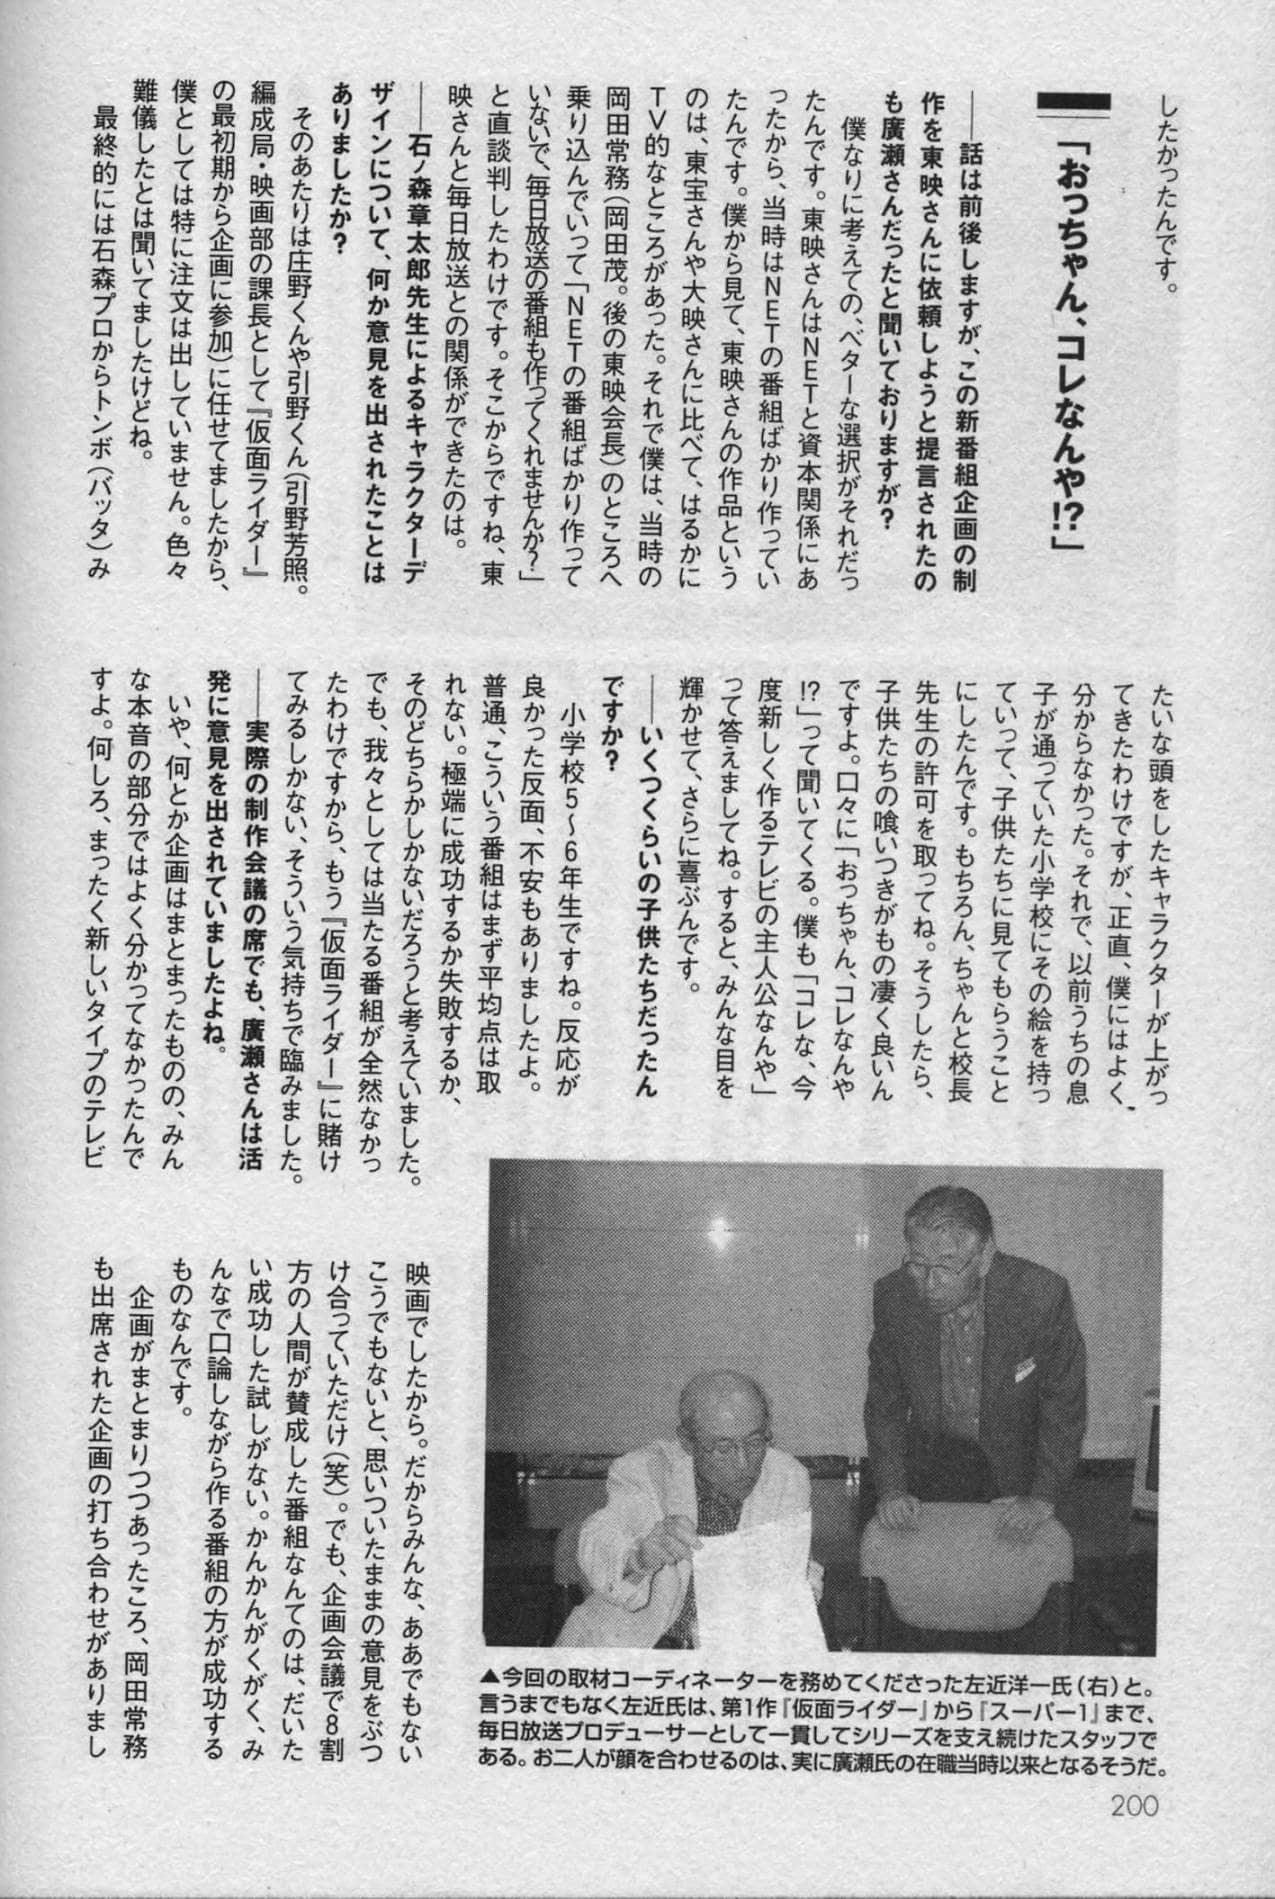 したかったんです。
「おっちゃん、コレなんや!?」
――話は前後しますが、この新番組企画の制
作を東映さんに依頼しようと提言されたの
も廣瀬さんだったと聞いておりますが?
僕なりに考えての、ベターな選択がそれだっ
たんです。東映さんはNETと資本関係にあ
ったから、当時はNETの番組ばかり作ってい
たんです。僕から見て、東映さんの作品という
のは、東宝さんや大映さんに比べて、はるかに
TV的なところがあった。それで僕は、当時の
岡田常務(岡田茂。後の東映会長)のところへ
乗り込んでいって「NETの番組ばかり作って
いないで、毎日放送の番組も作ってくれませんか?」
と直談判したわけです。そこからですね、東
映さんと毎日放送との関係ができたのは。
――石ノ森章太郎先生によるキャラクターデ
ザインについて、何か意見を出されたことは
ありましたか?
そのあたりは庄野くんや引野くん(引野芳照。
編成局・映画部の課長として『仮面ライダー』
の最初期から企画に参加)に任せてましたから、
僕としては特に注文は出していません。色々
難儀したとは聞いてましたけどね。
最終的には石森プロからトンボ(バッタ)み
たいな頭をしたキャラクターが上がっ
てきたわけですが、正直、僕にはよく
分からなかった。それで、以前うちの息
子が通っていた小学校にその絵を持っ
ていって、子供たちに見てもらうこと
にしたんです。もちろん、ちゃんと校長
先生の許可を取ってね。そうしたら、
子供たちの喰いつきがもの凄く良いん
ですよ。口々に「おっちゃん、コレなんや
!?」って聞いてくる。僕も「コレな、今
度新しく作るテレビの主人公なんや」
って答えましてね。すると、みんな目を
輝かせて、さらに喜ぶんです。
――いくつくらいの子供たちだったん
ですか?
小学校5〜6年生ですね。反応が
良かった反面、不安もありましたよ。
普通、こういう番組はまず平均点は取
れない。極端に成功するか失敗するか、
そのどちらかしかないだろうと考えていました。
でも、我々としては当たる番組が全然なかっ
たわけですから、もう『仮面ライダー』に賭け
てみるしかない、そういう気持ちで臨みました。
――実際の制作会議の席でも、廣瀬さんは活
発に意見を出されていましたよね。
いや、何とか企画はまとまったものの、みん
な本音の部分ではよく分かってなかったんで
すよ。何しろ、まったく新しいタイプのテレビ
映画でしたから。だからみんな、ああでもない
こうでもないと、思いついたままの意見をぶつ
け合っていただけ(笑)。でも、企画会議で8割
方の人間が賛成した番組なんてのは、だいた
い成功した試しがない。かんかんがくがく、み
んなで口論しながら作る番組の方が成功する
ものなんです。
企画がまとまりつつあったころ、岡田常務
も出席された企画の打ち合わせがありまし
▲今回の取材コーディネーターを務めてくださった左近洋一氏(右)と。
言うまでもなく左近氏は、第1作『仮面ライダー』から『スーパー1』まで、
毎日放送プロデューサーとして一貫してシリーズを支え続けたスタッフで
ある。お二人が顔を合わせるのは、実に廣瀬氏の在職当時以来となるそうだ。
200